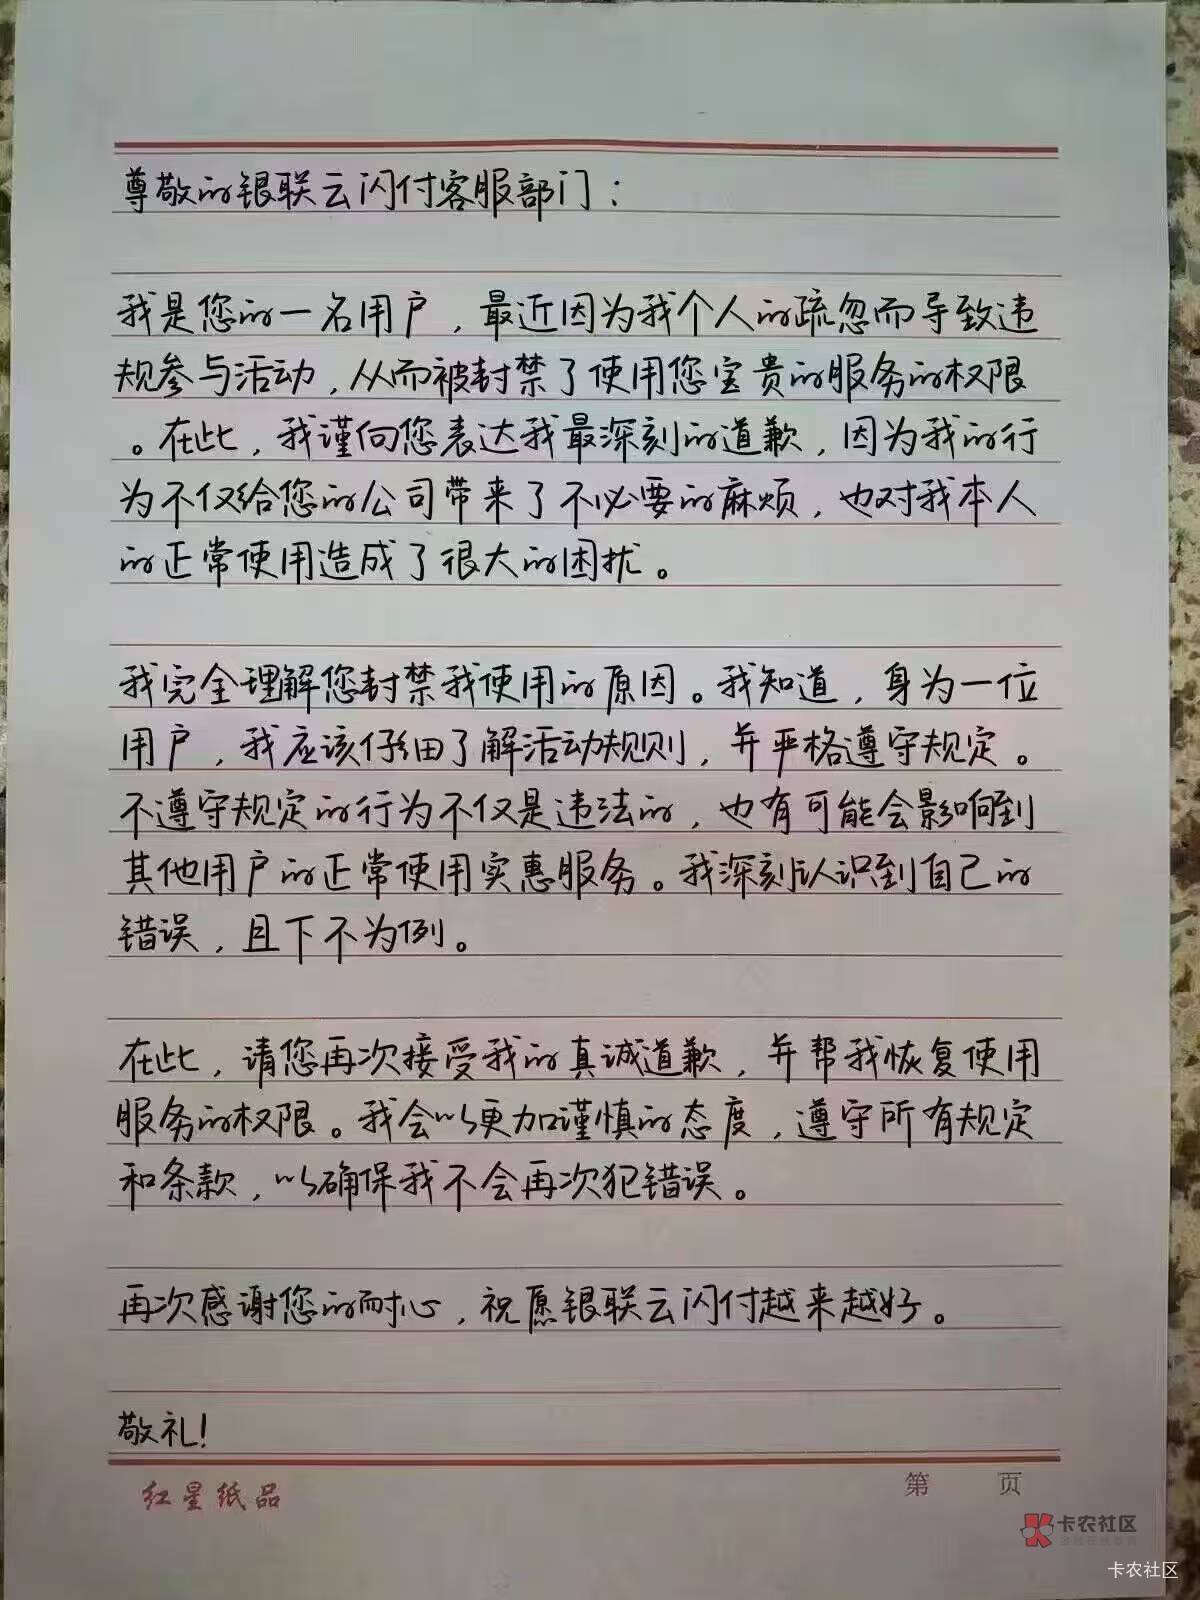 尊敬的银联云闪付客服部门：
我是您的一名用户，最近因为我个人的疏忽而导致违
规参与活动，从而被封禁了使用您宝贵的服务的权限
。在此，我谨向您表达我最深刻的道歉，因为我的行
为不仅给您的公司带来了不必要的麻烦，也对我本人
的正常使用造成了很大的困扰。
我完全理解您封禁我使用的原因。我知道，身为一位
用户，我应该仔细了解活动规则，并严格遵守规定。
不遵守规定的行为不仅是违法的，也有可能会影响到
其他用户的正常使用实惠服务。我深刻认识到自己的
错误，且下不为例。
在此，请您再次接受我的真诚道歉，并帮我恢复使用
服务的权限。我会以更加谨慎的态度，遵守所有规定
和条款，以确保我不会再次犯错误。
再次感谢您的耐心，祝愿银联云闪付越来越好。
敬礼！
红星纸品
第 页
卡农社区
卡农社区